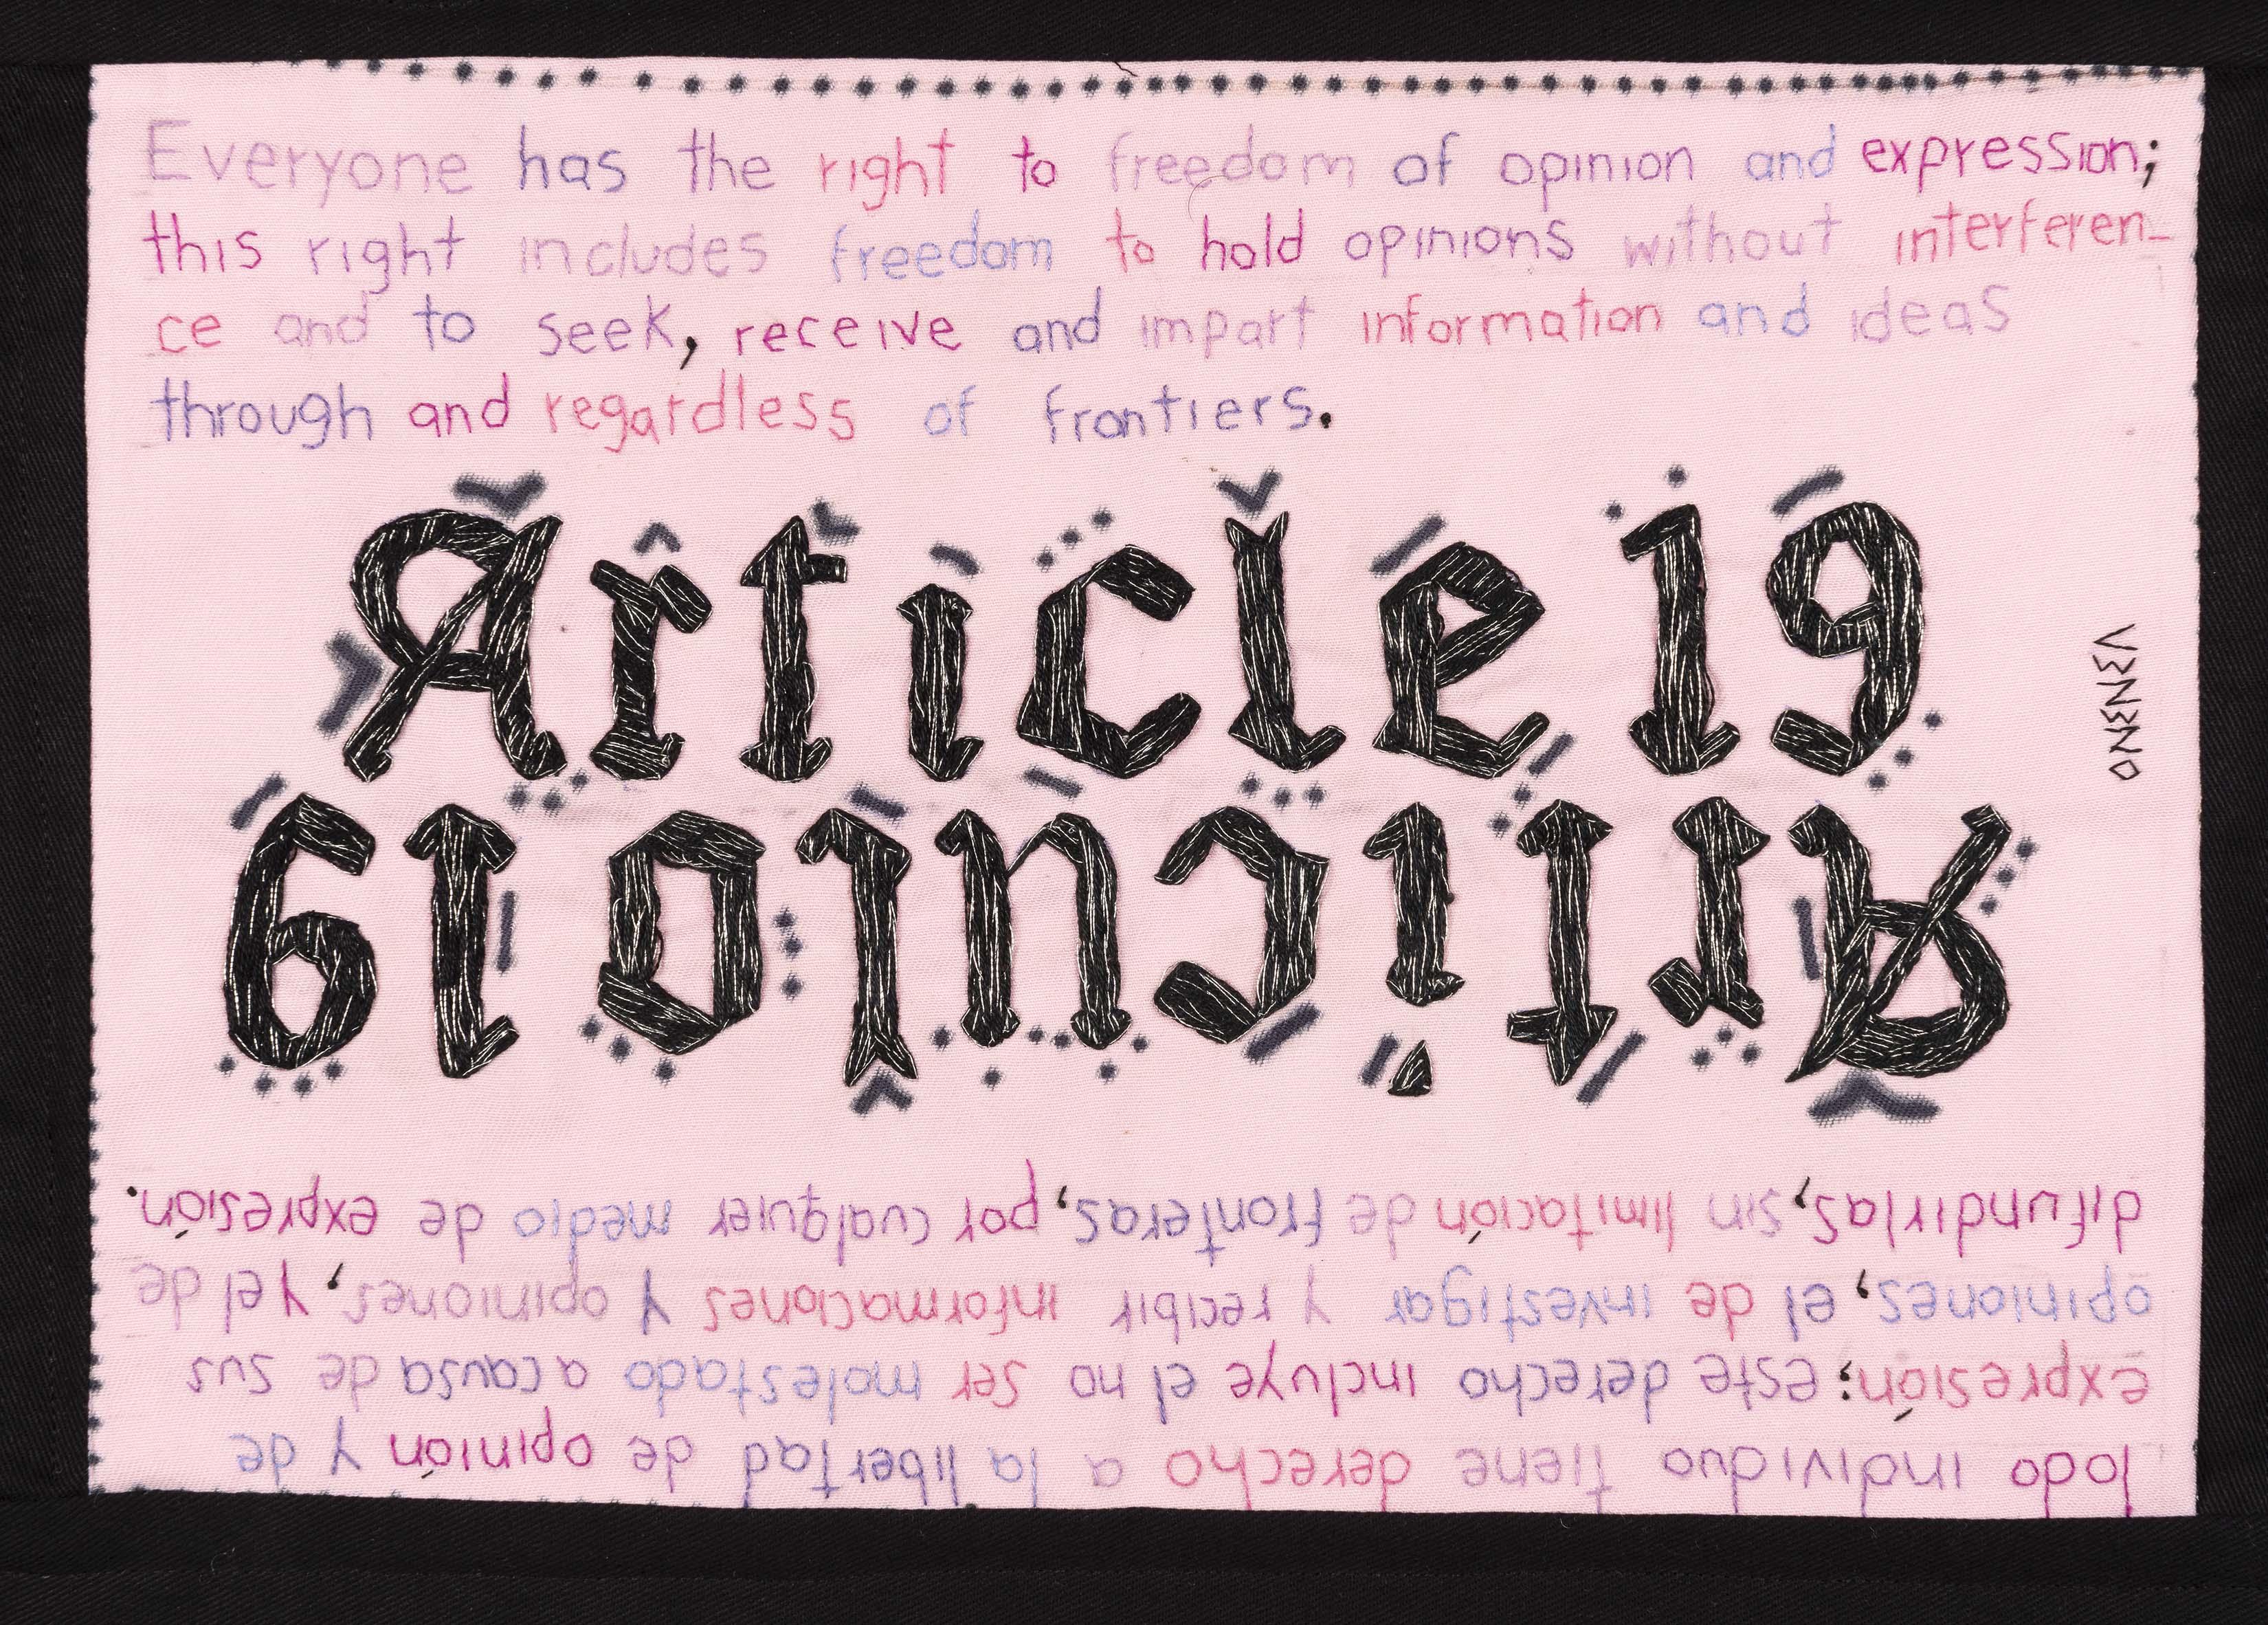 Everyone has the right to freedom of opinion and expression;
this right includes freedom to hold opinions without interferen-
ce and to seek, receive and impart information and ideas
through and regardless of frontiers.
Article 19
VENENO
Artículo 19
Todo individuo tiene derecho a la libertad de opinión y de
expresión; este derecho incluye el no ser molestado a causa de sus
opiniones, el de investigar y recibir informaciones y opiniones, y el de
difundirlas, sin limitación de fronteras, por cualquier medio de expresión.